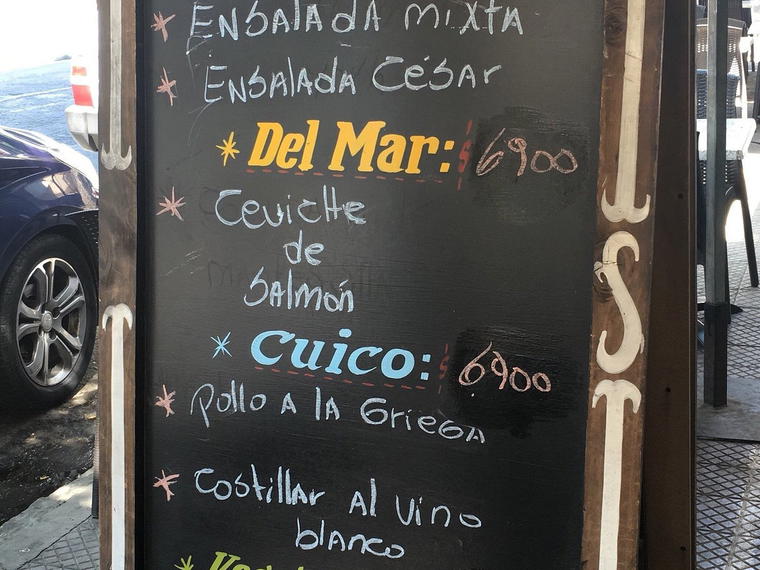 * Ensalada mixta
* Ensalada César
* Del Mar: $ 6900
* Ceviche
de
Salmón
* Cuico: $ 6900
* Pollo a la Griega
* Costillar al vino
blanco
*
S